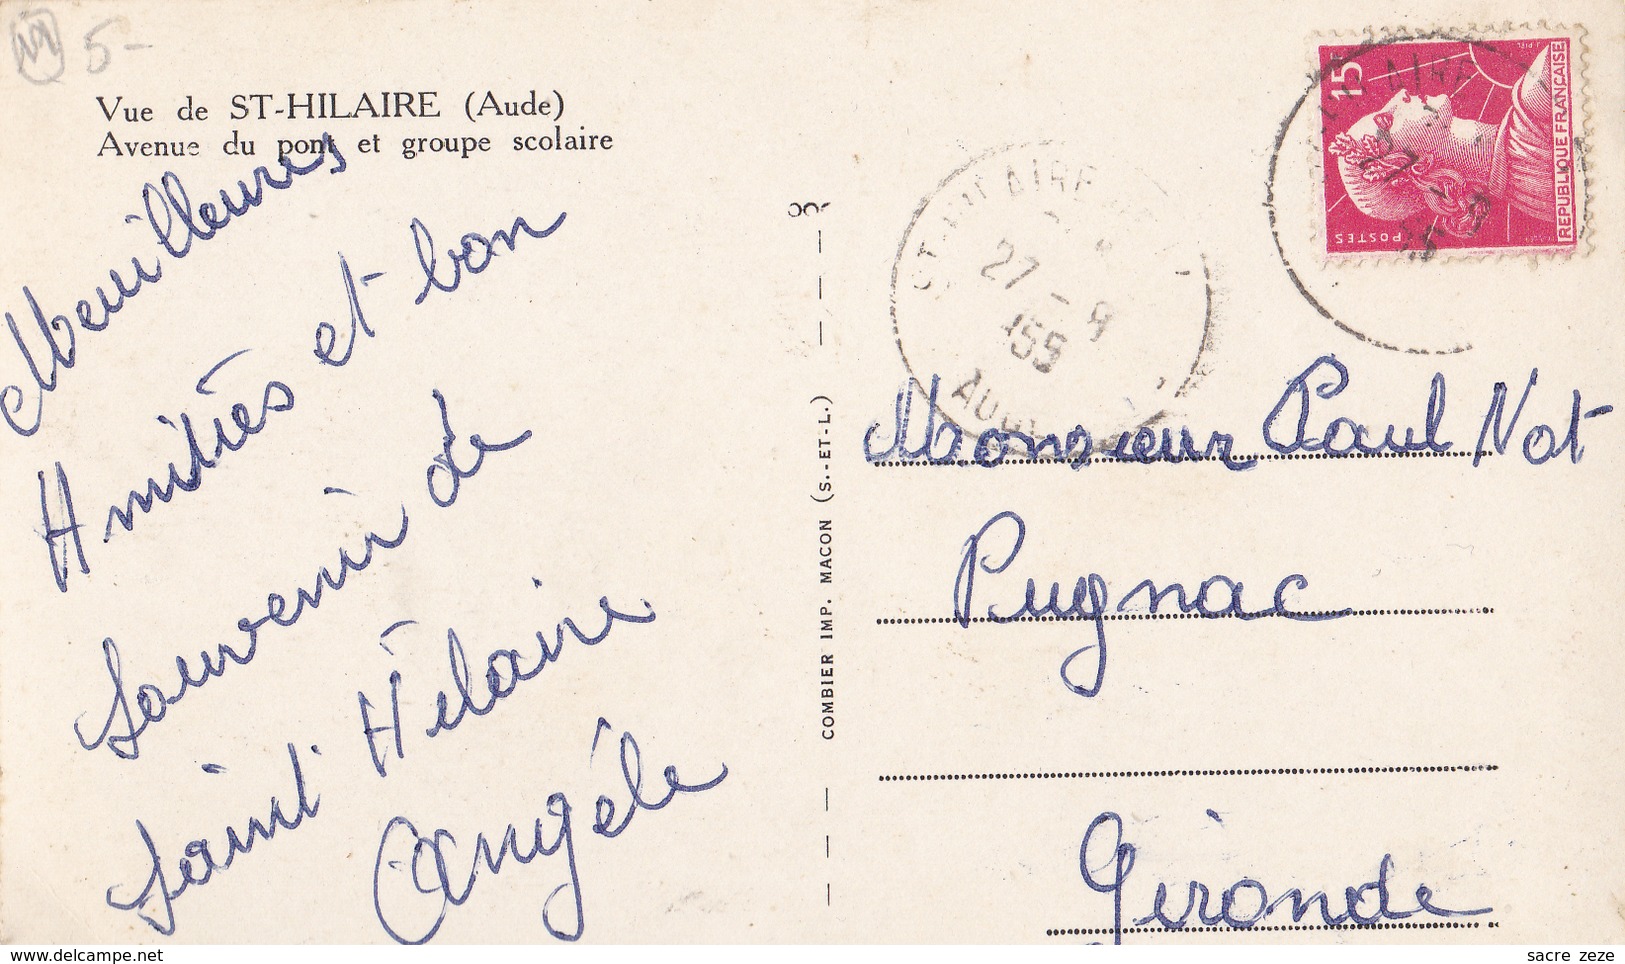 5-
Vue de ST-HILAIRE (Aude)
Avenue du pont et groupe scolaire
Meuilleures
Amitiés et bon
souvenir de
saint Hilaire
Angéle
COMBIER IMP. MACON (S.-ET-L.)
15F
POSTES
REPUBLIQUE FRANÇAISE
27 - 9
27 - 9
Monsieur Paul Not
Pugnac
Gironde
sacre zeze